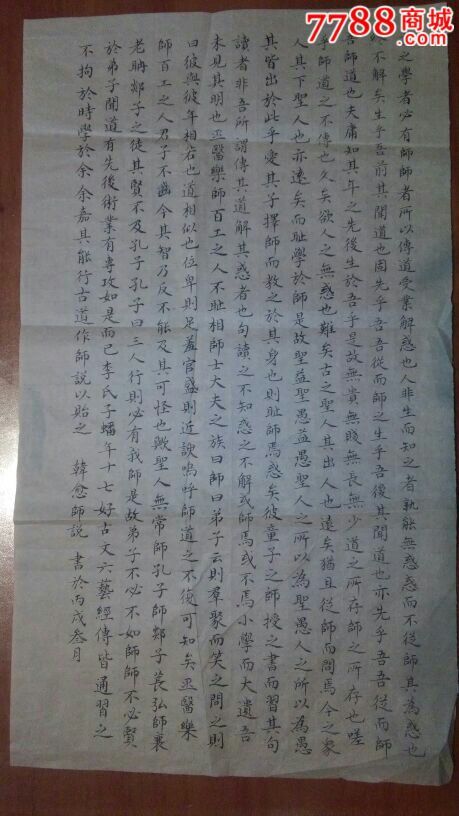 7788商城
.com
之學者必有師師者所以傳道受業解惑也人非生而知之者孰能無惑惑而不從師其為惑也
終不解矣生乎吾前其聞道也固先乎吾吾從而師之生乎吾後其聞道也亦先乎吾吾從而師
吾師道也夫庸知其年之先後生於吾乎是故無貴無賤無長無少道之所存師之所存也嗟
乎師道之不傳也久矣欲人之無惑也難矣古之聖人其出人也遠矣猶且從師而問焉今之衆
人其下聖人也亦遠矣而恥學於師是故聖益聖愚益愚聖人之所以為聖愚人之所以為愚
其皆出於此乎愛其子擇師而教之於其身也則恥師焉惑矣彼童子之師授之書而習其句
讀者非吾所謂傳其道解其惑者也句讀之不知惑之不解或師焉或不焉小學而大遺吾
未見其明也巫醫樂師百工之人不恥相師士大夫之族曰師曰弟子云則羣聚而笑之問之則
曰彼與彼年相若也道相似也位卑則足羞官盛則近諛嗚呼師道之不復可知矣巫醫樂
師百工之人君子不齒今其智乃反不能及其可怪也歟聖人無常師孔子師郯子萇弘師襄
老聃郯子之徒其賢不及孔子孔子曰三人行則必有我師是故弟子不必不如師師不必賢
於弟子聞道有先後術業有專攻如是而已李氏子蟠年十七好古文六藝經傳皆通習之
不拘於時學於余余嘉其能行古道作師說以貽之 韓愈師說 書於丙戌叁月